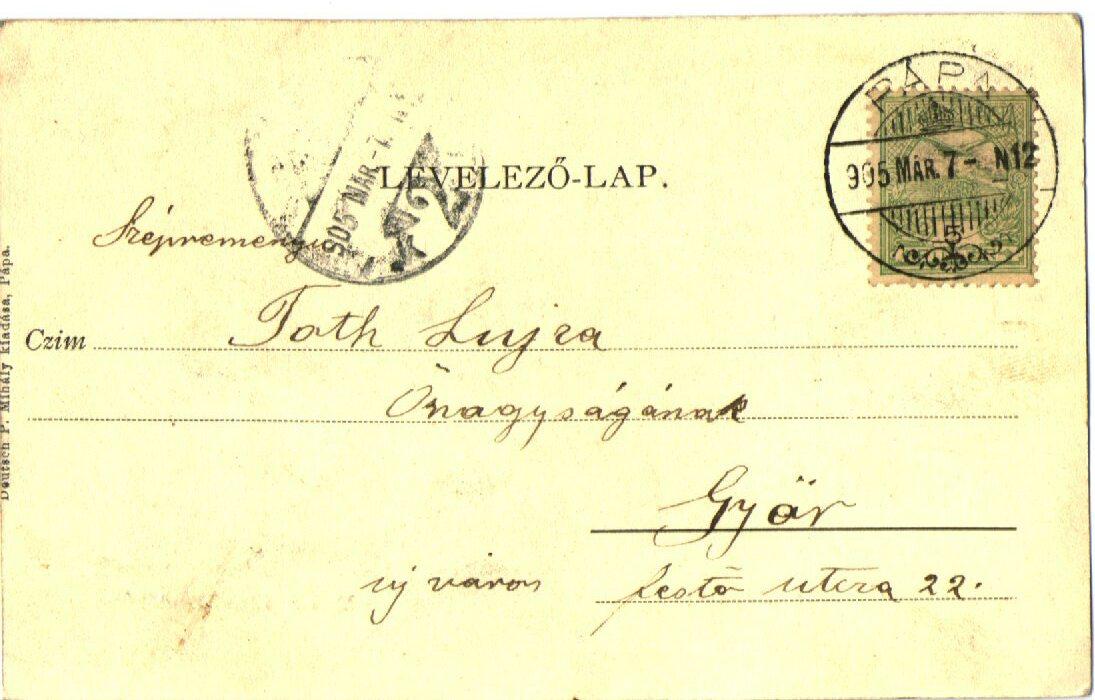 PÁPA
905 MÁR. 7 - N12
5
LEVELEZŐ-LAP.
905 MÁR. -7. N2
Szépreményű
Czim Toth Lujza
Őnagyságának
Győr
uj város festő utcza 22.
Deutsch P. Mihály kiadása, Pápa.